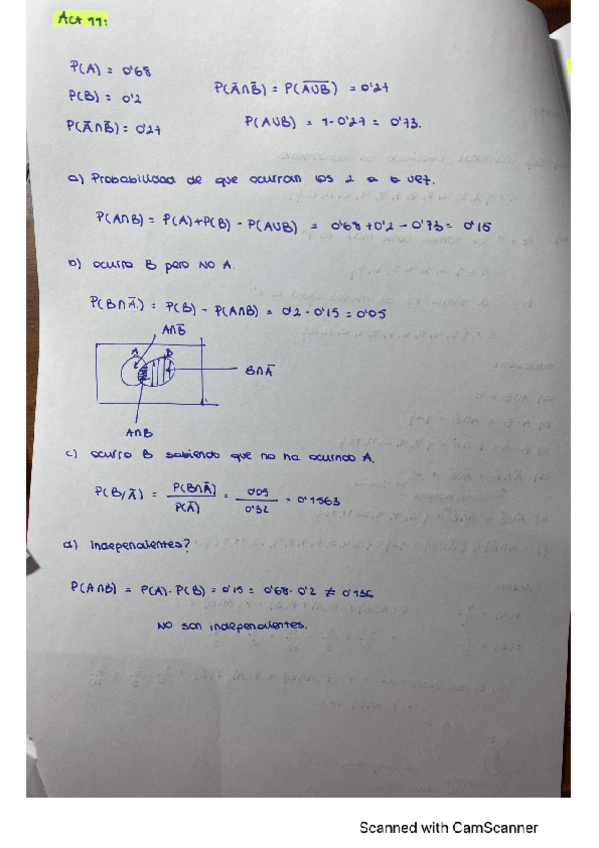 Act 11:
P(A) = 0'68
P(B) = 0'2
P(Ā∩B̄) = 0'27
P(Ā∩B̄) = P(A̅U̅B̅) = 0'27
P(AUB) = 1-0'27 = 0'73.
a) Probabilidad de que ocurran los 2 a la vez.
P(A∩B) = P(A)+P(B) - P(AUB) = 0'68+0'2-0'73 = 0'15
b) ocurra B pero NO A.
P(B∩Ā) = P(B) - P(A∩B) = 0'2-0'15 = 0'05
A∩B̄
A B
B∩Ā
A∩B
c) ocurra B sabiendo que no ha ocurrido A.
P(B/Ā) = P(B∩Ā)/P(Ā) = 0'05/0'32 = 0'1563
d) independientes?
P(A∩B) = P(A)·P(B) = 0'15 = 0'68·0'2 ≠ 0'136
NO son independientes.
Scanned with CamScanner